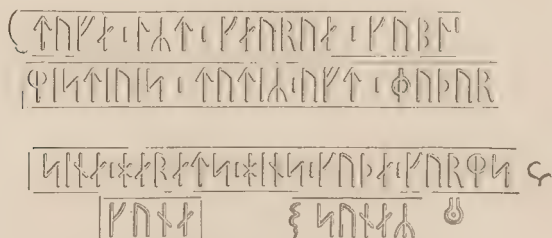 ᛏᚢᚠᛅ ᛬ ᛚᛦᛏ ᛬ ᚴᛅᚢᚱᚢᛅ ᛬ ᚴᚢᛒᛚ
ᛘᛁᛋᛏᛁᚢᛁᛋ ᛬ ᛏᚢᛏᛁᛦ ᛬ ᚢᚠᛏ ᛬ ᛘᚢᚦᚢᚱ
ᛋᛁᚾᛅ ᛬ ᚼᛅᚱᛅᛏᛋ ᛬ ᚼᛁᚾᛋ ᛬ ᚴᚢᚦᛅ ᛬ ᚴᚢᚱᛘᛋ
ᚴᚢᚾᛅ ᛋᚢᚾᛅᛦ